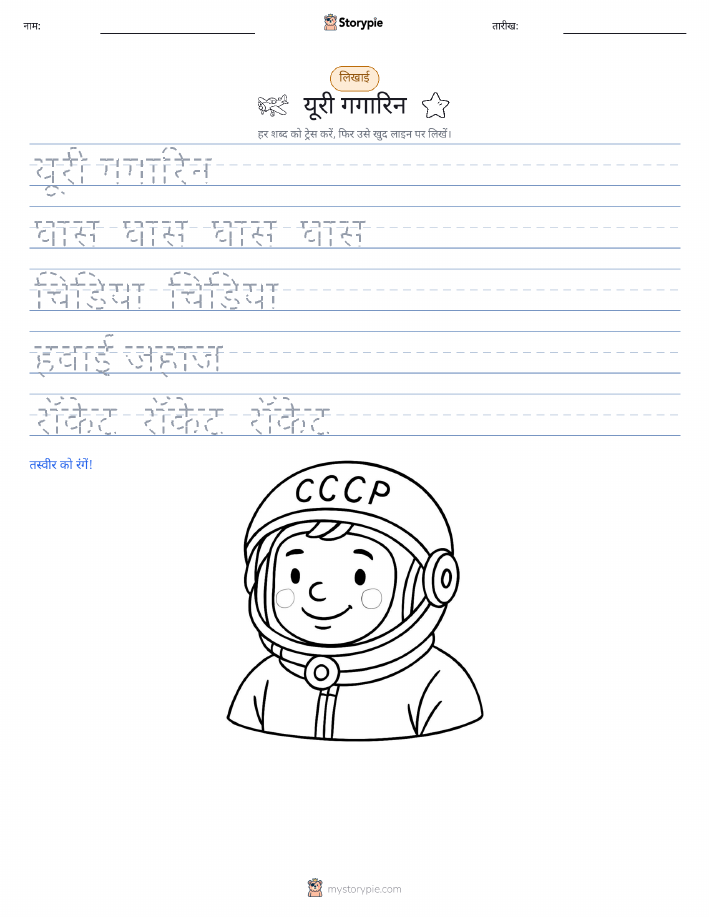 नाम:
Storypie
तारीख:
लिखाई
यूरी गगारिन
हर शब्द को ट्रेस करें, फिर उसे खुद लाइन पर लिखें।
यूरी गगारिन
घास घास घास घास
चिडिया चिडिया
हवाई जहाज
रॉकेट रॉकेट रॉकेट
तस्वीर को रंगें!
СССР
mystorypie.com